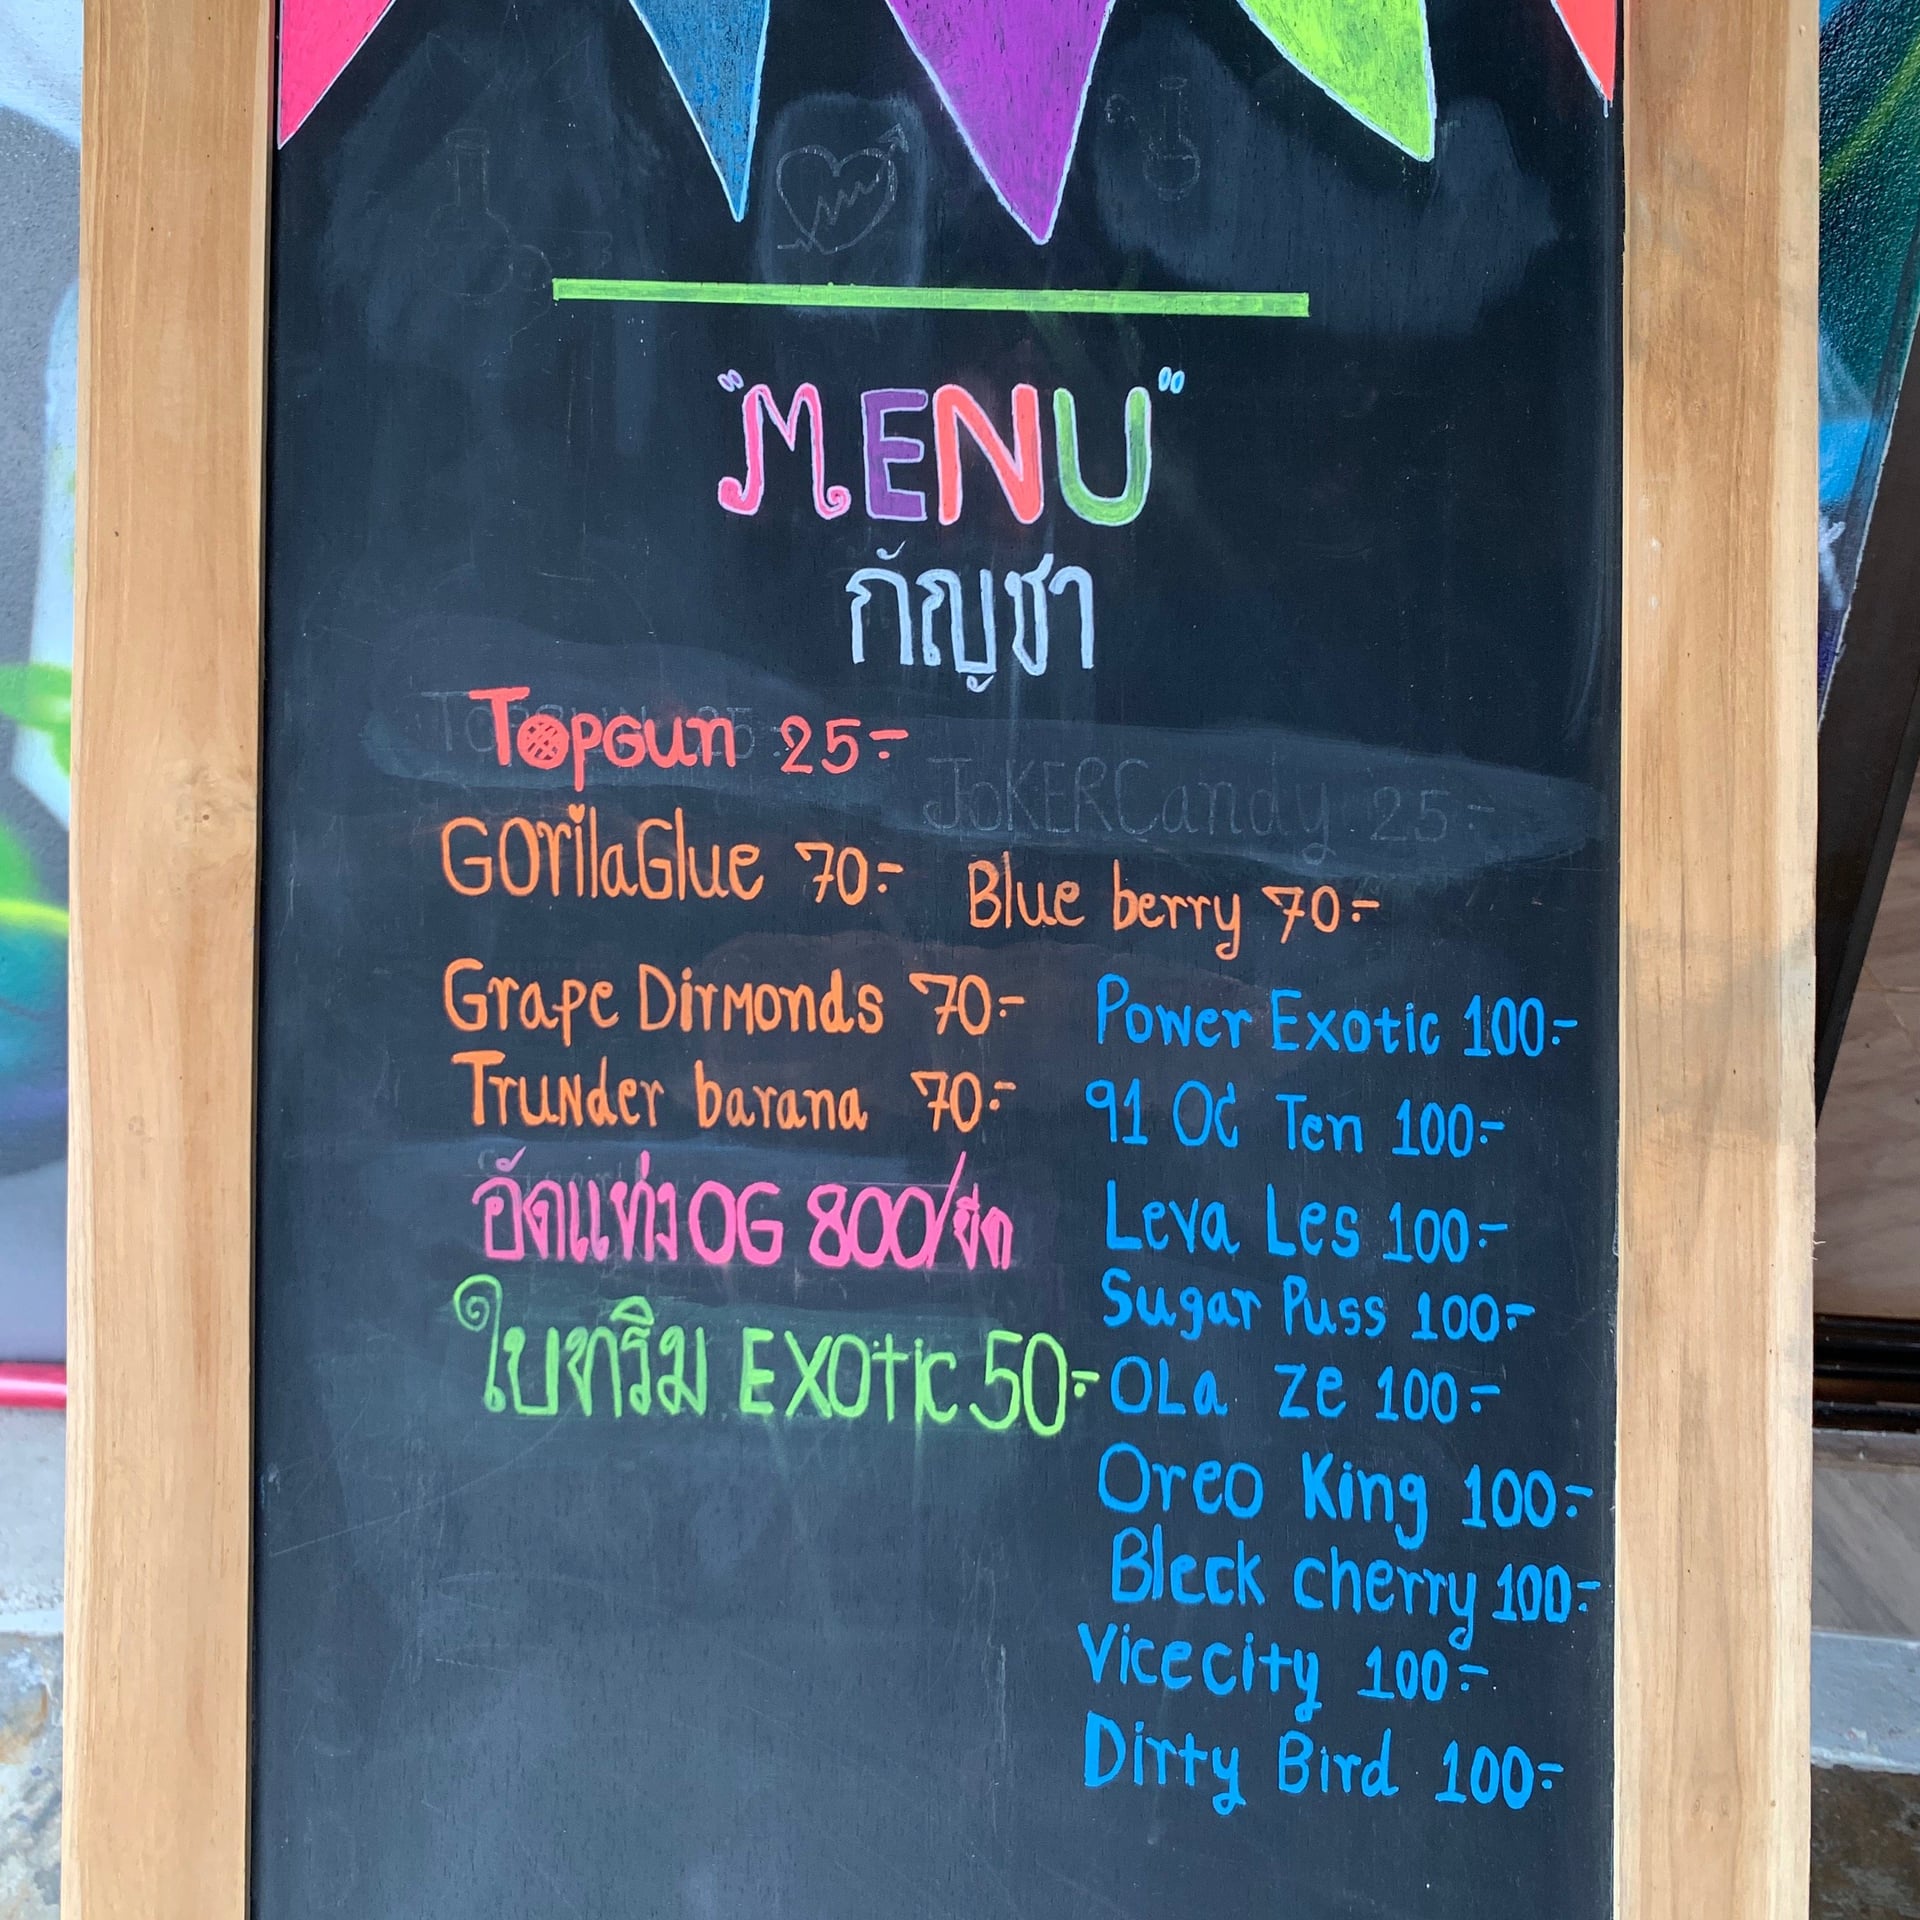 "MENU"
กัญชา
TOPGun 25.-
JOKERCandy 25.-
GOrilaGlue 70.-
Blue berry 70.-
Grape Dirmonds 70.-
Power Exotic 100.-
Trunder barana 70.-
91 OG Ten 100.-
อัดแท่งOG 800/ขีด
Leva Les 100.-
Sugar Puss 100.-
ใบทริม EXOtic 50.-
OLa Ze 100.-
Oreo King 100.-
Bleck cherry 100.-
Vicecity 100.-
Dirty Bird 100.-